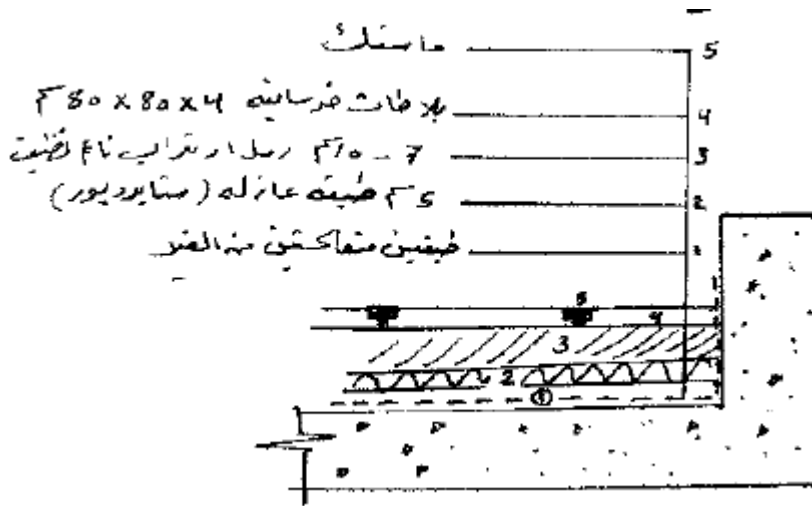 ماستك 5
بلاطات خرسانيه 4 x 80 x 80 سم 4
7 - 10 سم رمل او تراب ناعم نظيف 3
5 سم طبقه عازله (ستايروبور) 2
طبقتين متعاكستين من القير 1
5
4
3
2
1